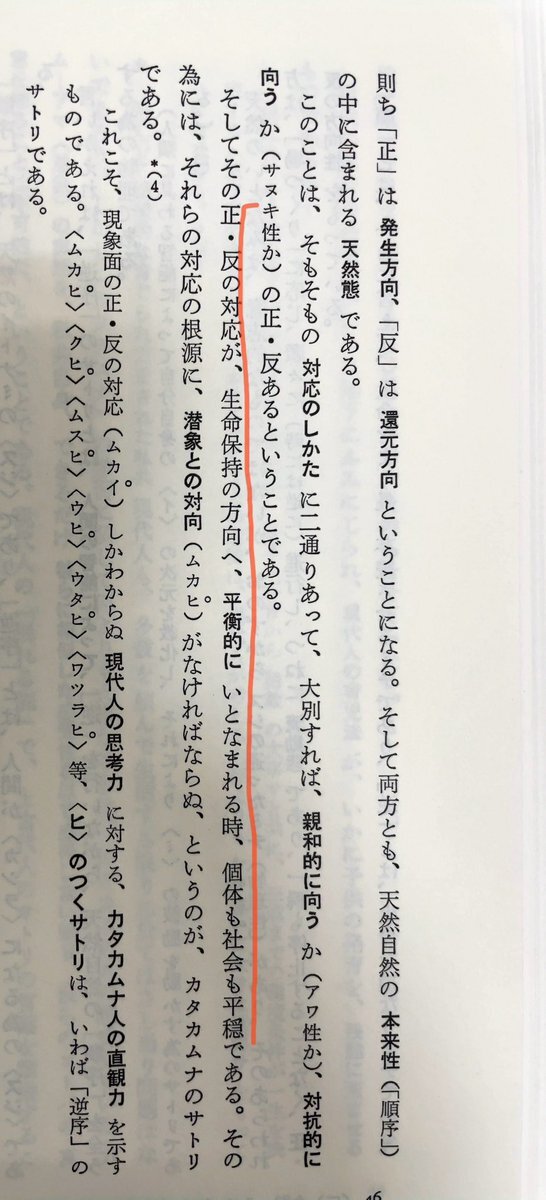 則ち「正」は 発生方向、「反」は 還元方向 ということになる。そして両方とも、天然自然の 本来性(「順序」)
の中に含まれる 天然態 である。
このことは、そもそもの 対応のしかた に二通りあって、大別すれば、親和的に向う か(アワ性か)、対抗的に
向う か(サヌキ性か)の正・反あるということである。
そしてその正・反の対応が、生命保持の方向へ、平衡的に いとなまれる時、個体も社会も平穏である。その
為には、それらの対応の根源に、潜象との対向(ムカヒ)がなければならぬ、というのが、カタカムナのサトリ
である。*(4)
これこそ、現象面の正・反の対応(ムカイ)しかわからぬ 現代人の思考力 に対する、カタカムナ人の直観力 を示す
ものである。〈ムカヒ〉〈クヒ〉〈ムスヒ〉〈ウヒ〉〈ウタヒ〉〈ワツラヒ〉等、〈ヒ〉のつくサトリは、いわば「逆序」の
サトリである。
46